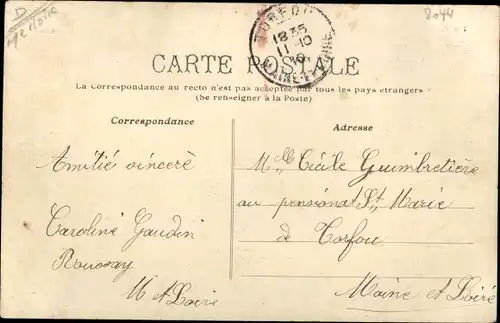 D
8044
TORFOU
18 35
11-10
10
MAINE-ET-LOIRE
CARTE POSTALE
La Correspondance au recto n'est pas acceptée par tous les pays étrangers
(Se renseigner à la Poste)
Correspondance
Amitié sincère
Caroline Gaudin
Roussay
M et Loire
Adresse
Mlle Cécile Guimbretière
au pensionat St Marie
de Torfou
Maine et Loire